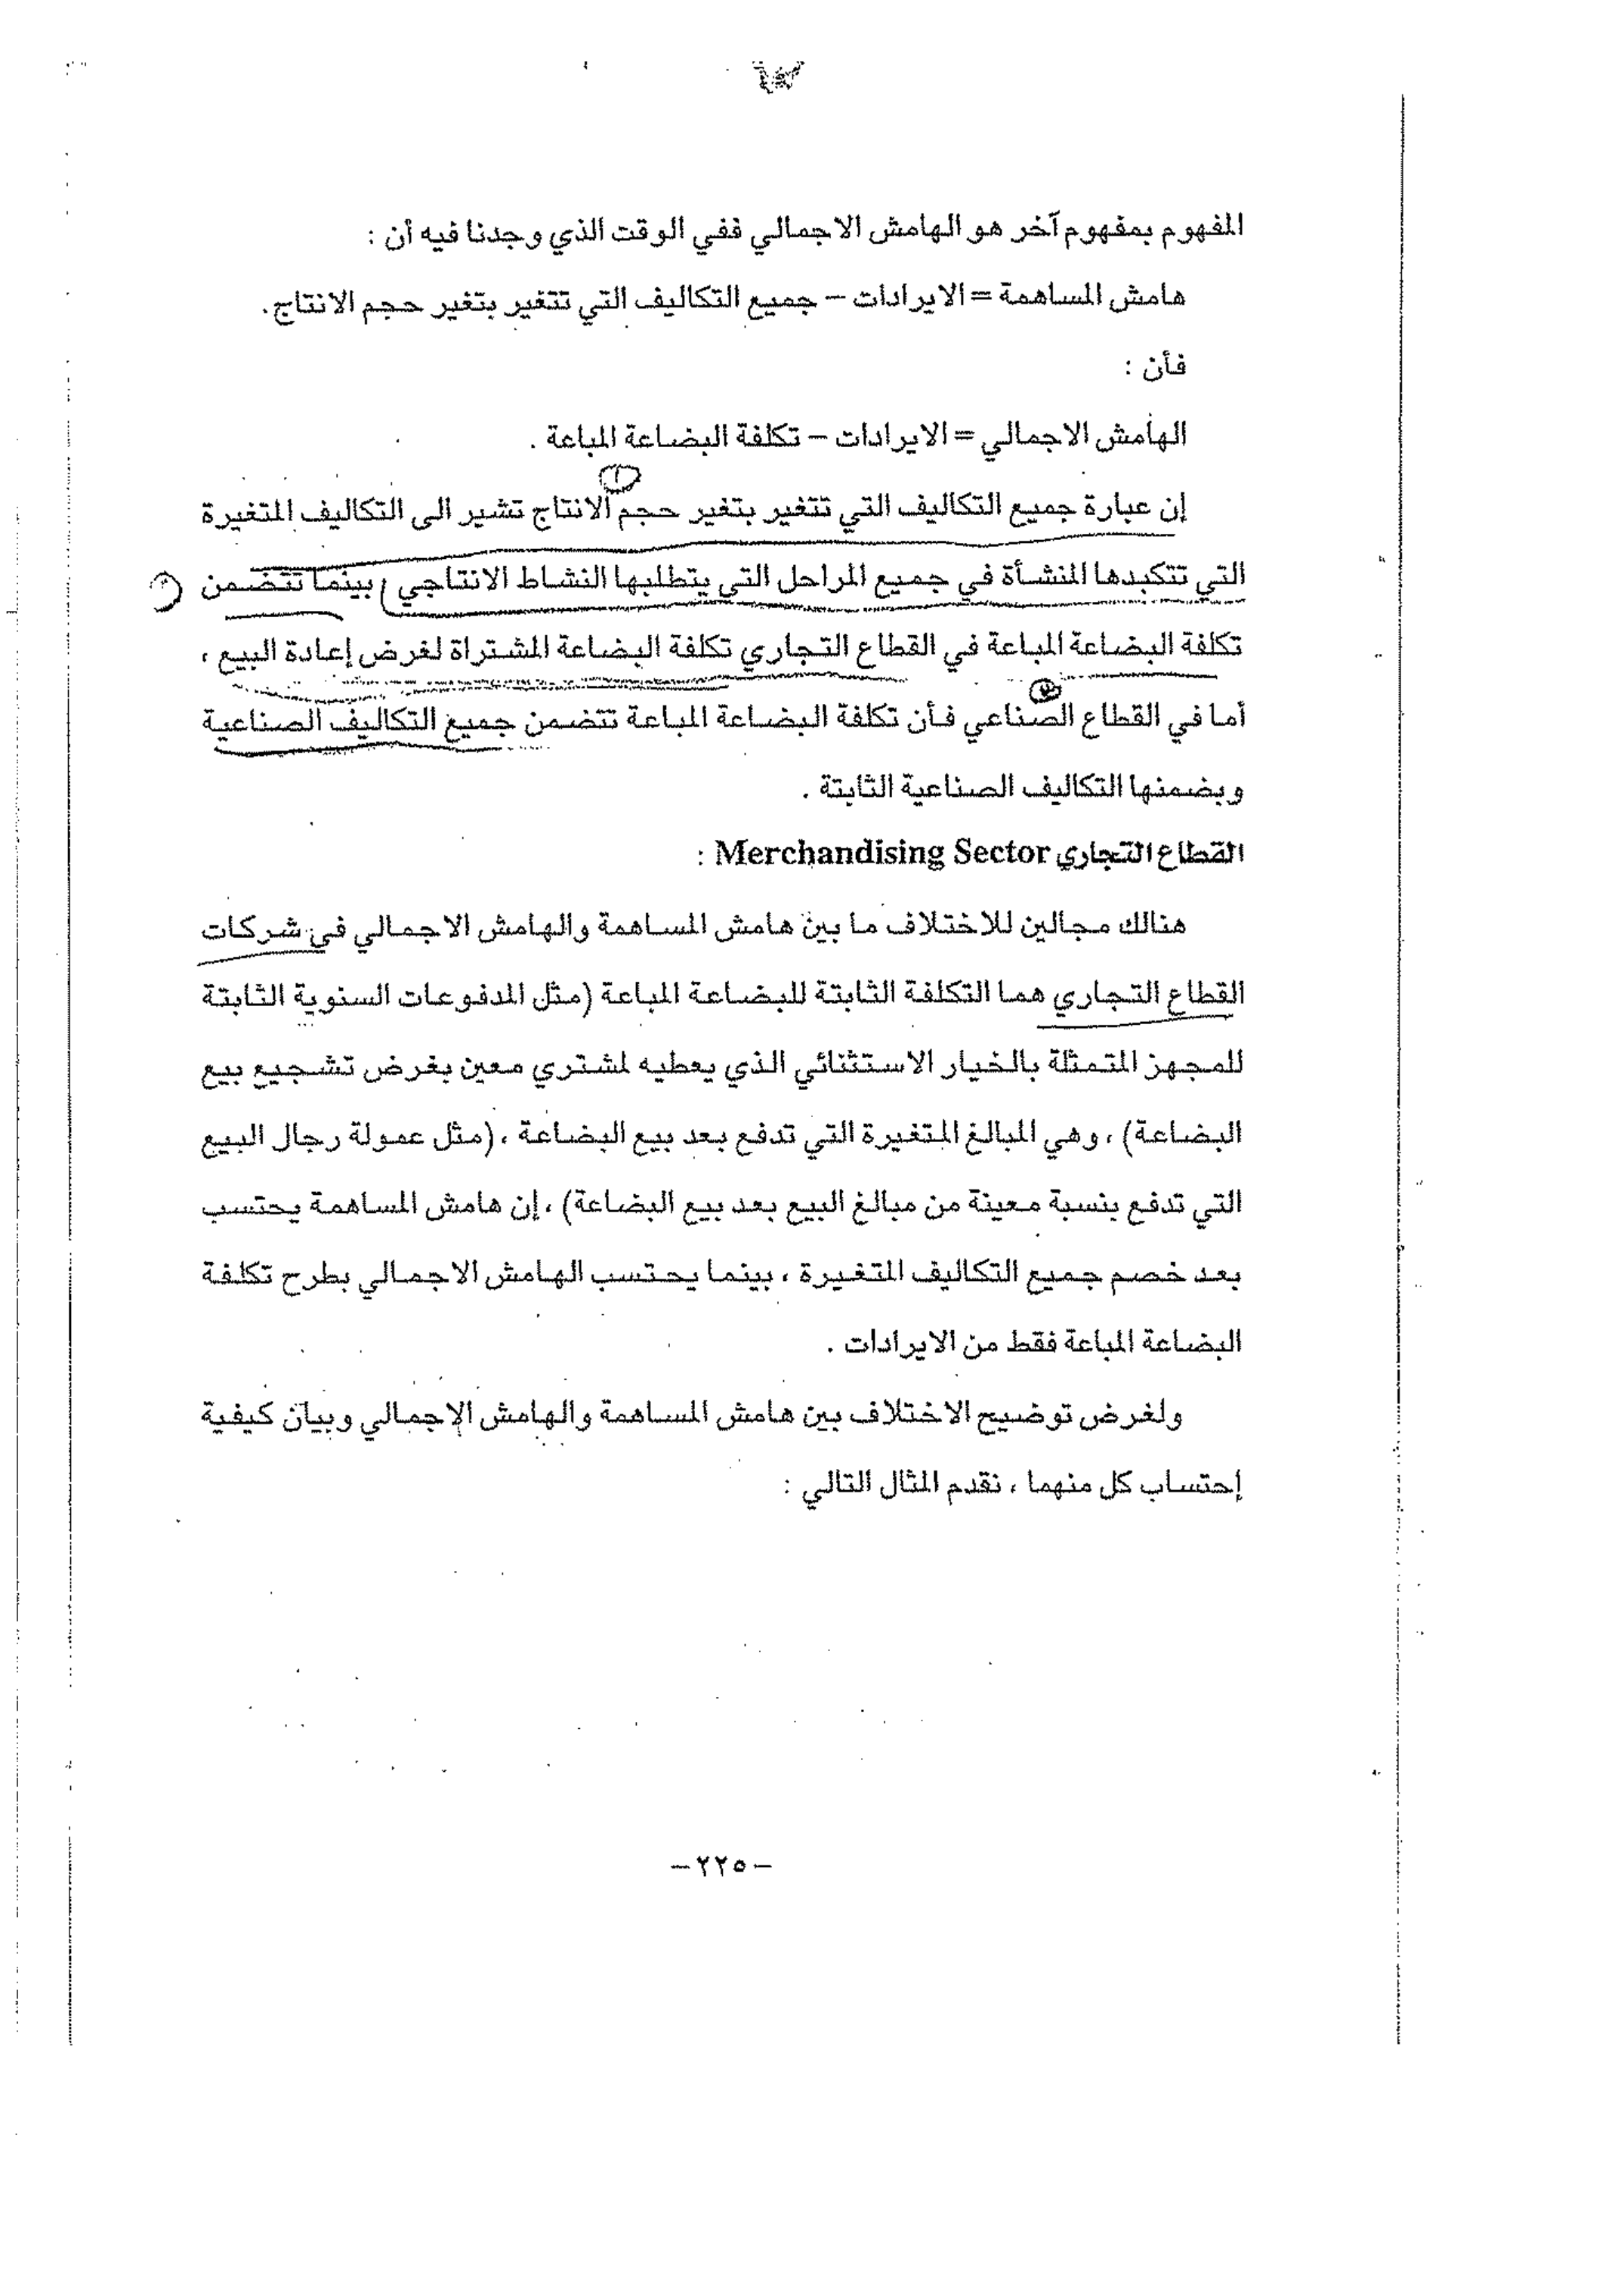 المفهوم بمفهوم آخر هو الهامش الاجمالي ففي الوقت الذي وجدنا فيه أن :
هامش المساهمة = الايرادات – جميع التكاليف التي تتغير بتغير حجم الانتاج.
فأن :
الهامش الاجمالي = الايرادات – تكلفة البضاعة المباعة .
إن عبارة جميع التكاليف التي تتغير بتغير حجم الانتاج تشير الى التكاليف المتغيرة
التي تتكبدها المنشأة في جميع المراحل التي يتطلبها النشاط الانتاجي ) بينما تتضمن
تكلفة البضاعة المباعة في القطاع التجاري تكلفة البضاعة المشتراة لغرض إعادة البيع ،
أما في القطاع الصناعي فأن تكلفة البضاعة المباعة تتضمن جميع التكاليف الصناعية
وبضمنها التكاليف الصناعية الثابتة .
القطاع التجاري Merchandising Sector :
هنالك مجالين للاختلاف ما بين هامش المساهمة والهامش الاجمالي في شركات
القطاع التجاري هما التكلفة الثابتة للبضاعة المباعة (مثل المدفوعات السنوية الثابتة
للمجهز المتمثلة بالخيار الاستثنائي الذي يعطيه لمشتري معين بغرض تشجيع بيع
البضاعة) ، وهي المبالغ المتغيرة التي تدفع بعد بيع البضاعة ، (مثل عمولة رجال البيع
التي تدفع بنسبة معينة من مبالغ البيع بعد بيع البضاعة) ، إن هامش المساهمة يحتسب
بعد خصم جميع التكاليف المتغيرة ، بينما يحتسب الهامش الاجمالي بطرح تكلفة
البضاعة المباعة فقط من الايرادات .
ولغرض توضيح الاختلاف بين هامش المساهمة والهامش الإجمالي وبيان كيفية
إحتساب كل منهما ، نقدم المثال التالي :
–٢٢٥–